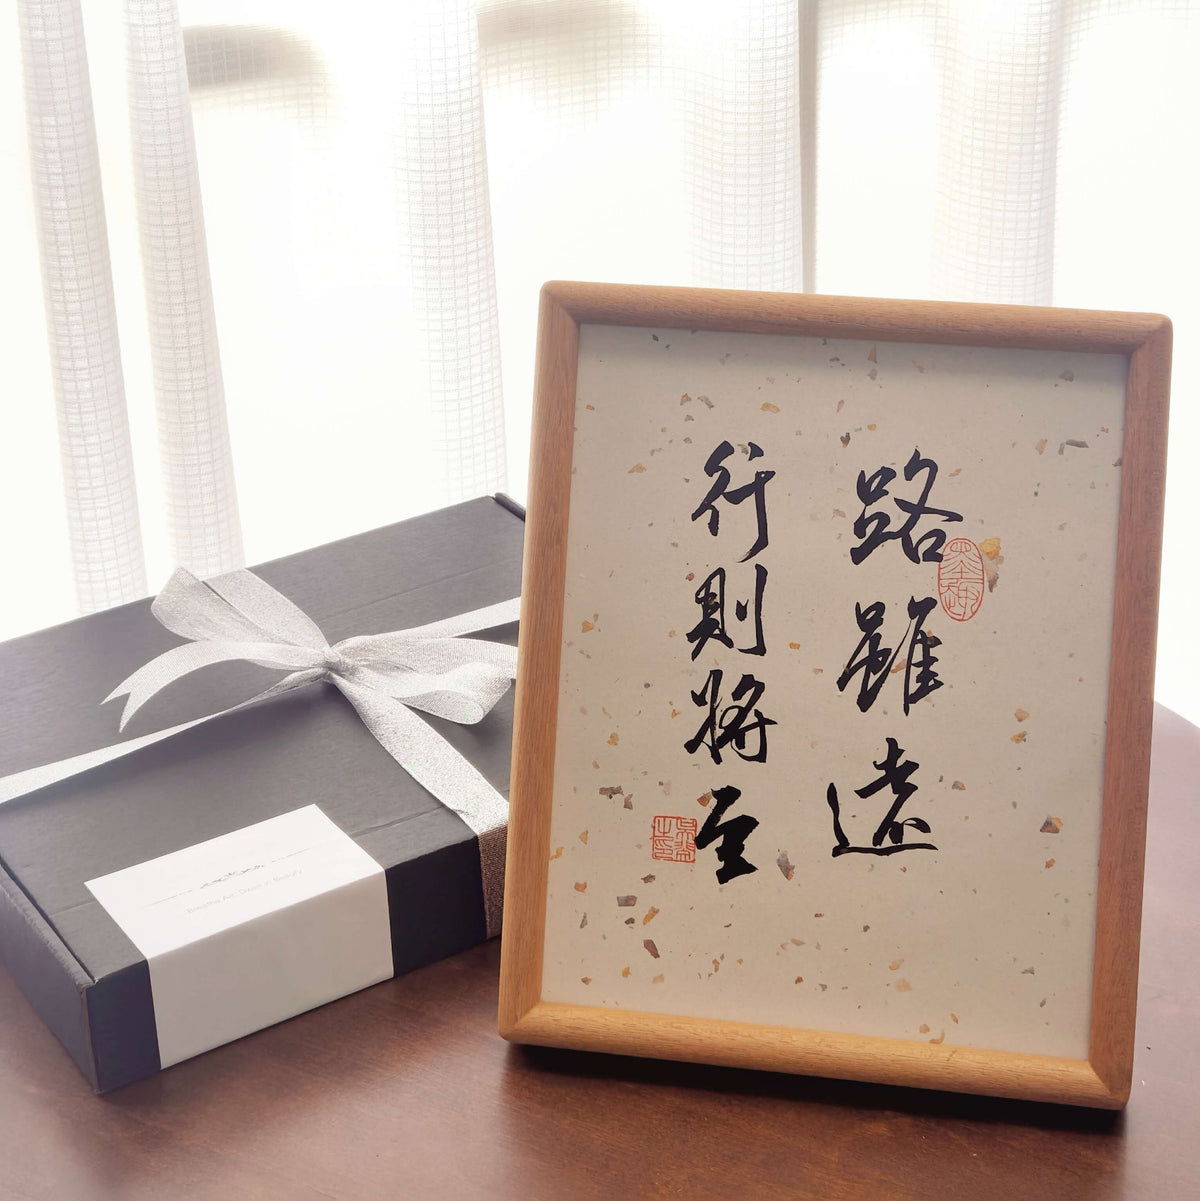 路雖遠
行則將至
Breathe Art, Dwell in Beauty